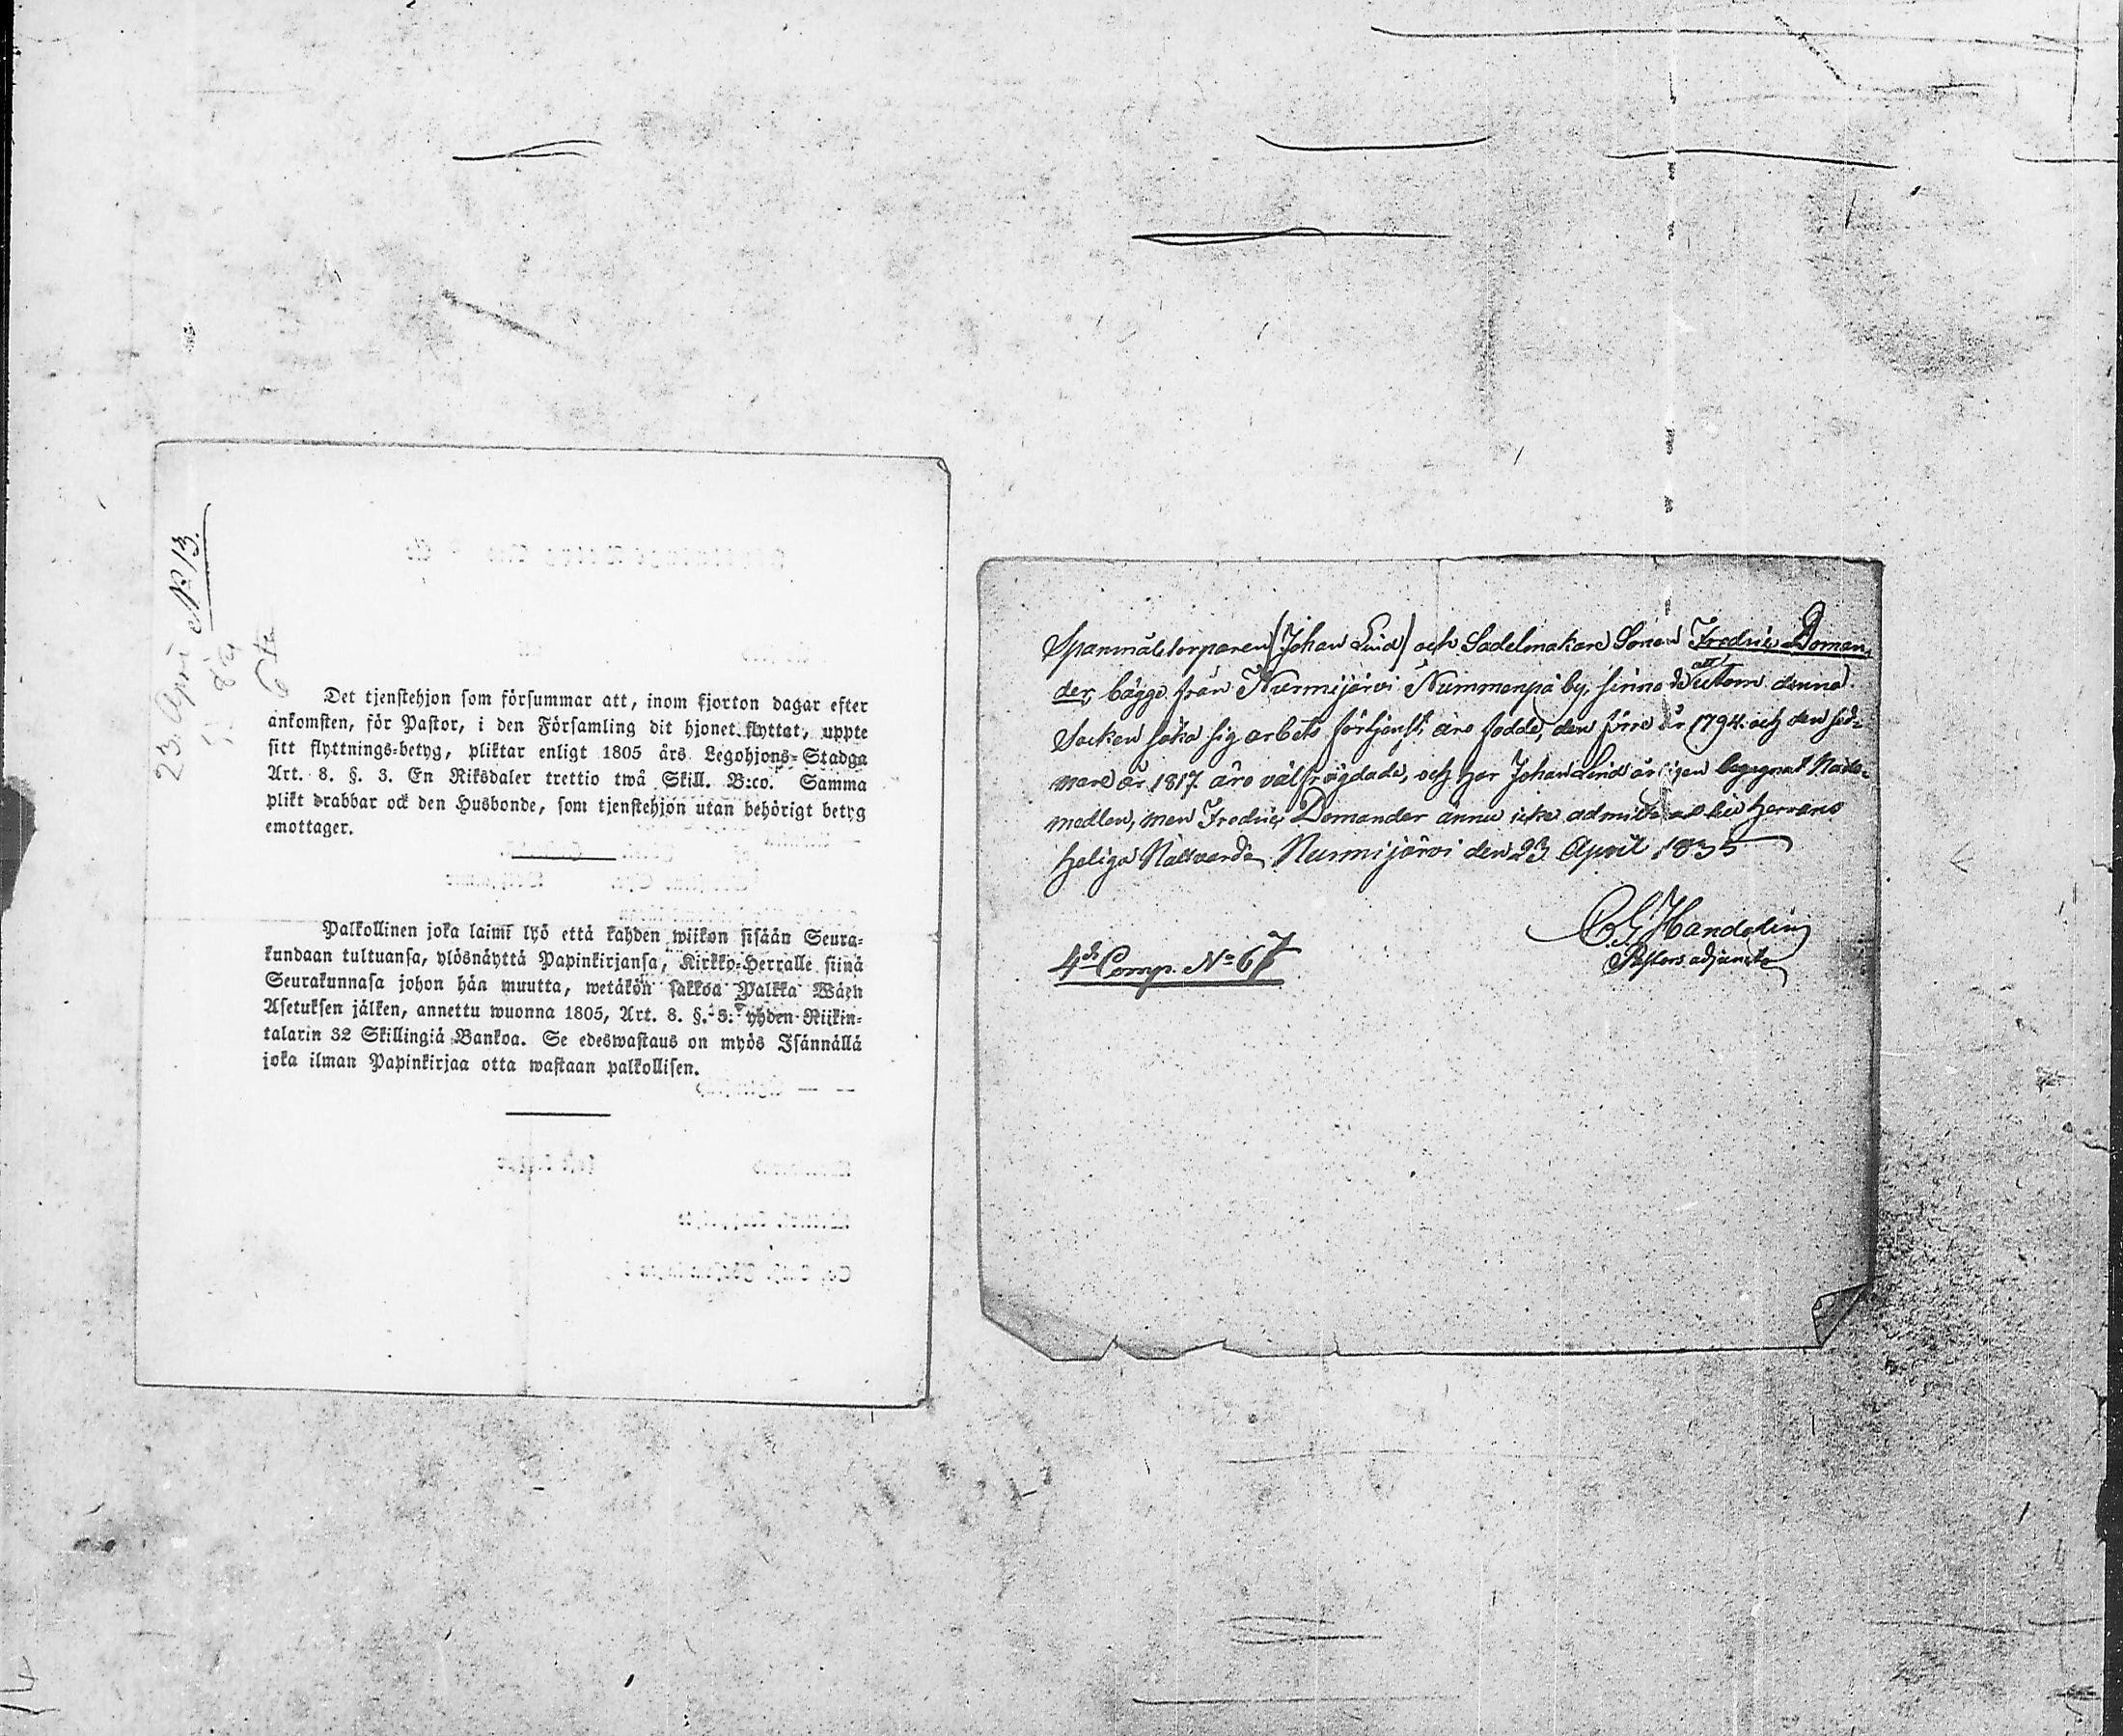 23. April N 13.
Det tjenstehjon som försummar att, inom fjorton dagar efter
ankomsten, för Pastor, i den Församling dit hjonet flyttat, uppte
sitt flyttnings-betyg, pliktar enligt 1805 års Legohjons-Stadga
Art. 8. §. 3. En Riksdaler trettio twå Skill. B:co. Samma
plikt drabbar ock den Husbonde, som tjenstehjon utan behörigt betyg
emottager.
Palkollinen joka laimi lyö että kahden wiikon sisään Seura-
kundaan tultuansa, ylösnäyttä Papinkirjansa, Kirkko-Herralle siinä
Seurakunnasa johon hän muutta, wetäkön sakkoa Palkka Wäen
Asetuksen jälken, annettu wuonna 1805, Art. 8. §. 3. yhden Riikin-
talarin 32 Skillingiä Bankoa. Se edeswastaus on myös Isännällä
joka ilman Papinkirjaa otta wastaan palkollisen.
Spanmålstorparen (Johan Lind) och Sadelmakare Sonen Fredric Doman,
der, bägge från Nurmijärvi Nummenpä by, sinnade att utom denna
Socken söka sig arbets förtjenst, äro födde, den förre år 1794. och den sed-
nare år 1817. äro välfrägdade, och har Johan Lind årligen begagnat Nåde-
medlen, men Fredric Domander ännu icke admitterad til Herrans
Heliga Nattvard. Nurmijärvi den 23 April 1835
C. G. Handolin
Pastors adjunct
4de Comp. No 67